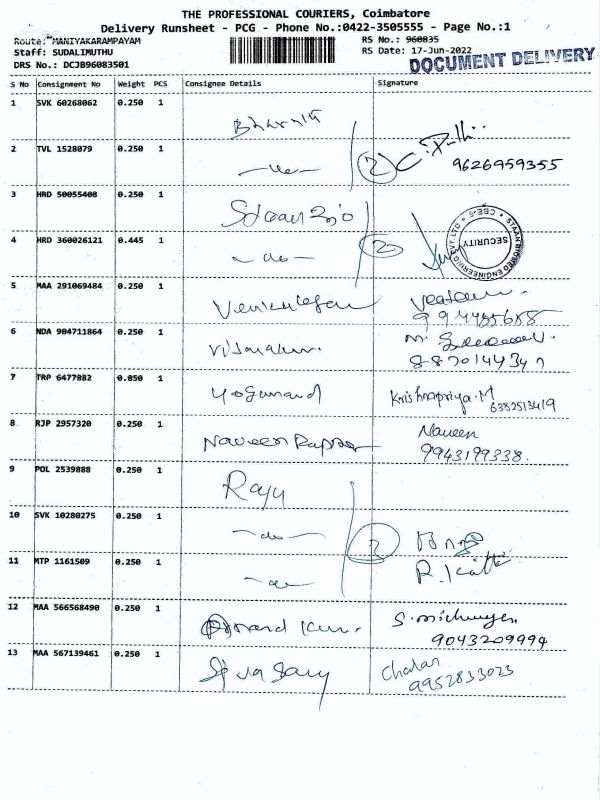 THE PROFESSIONAL COURIERS, Coimbatore
Delivery Runsheet - PCG - Phone No.:0422-3505555 - Page No.:1
Route: MANIYAKARAMPAYAM
RS No.: 960835
Staff: SUDALIMUTHU
RS Date: 17-Jun-2022
DRS No.: DCJB96083501
DOCUMENT DELIVERY
S No Consignment No Weight PCS Consignee Details Signature
1 SVK 60268062 0.250 1
2 TVL 1528079 0.250 1 2 9626959355
3 HRD 50055408 0.250 1
4 HRD 360026121 0.445 1 2
STAAN BIOMED ENGINEERING PVT. LTD CBE-5
SECURITY
5 MAA 291069484 0.250 1
6 NDA 904711864 0.250 1
7 TRP 6477082 0.850 1 Yoganand Krishnapriya.M
6382513419
8 RJP 2957320 0.250 1 Naveen Naveen
9943199338.
9 POL 2539888 0.250 1 Raju
10 SVK 10280275 0.250 1
11 MTP 1161509 0.250 1
12 MAA 566568490 0.250 1
9043209994
13 MAA 567139461 0.250 1
9952833023